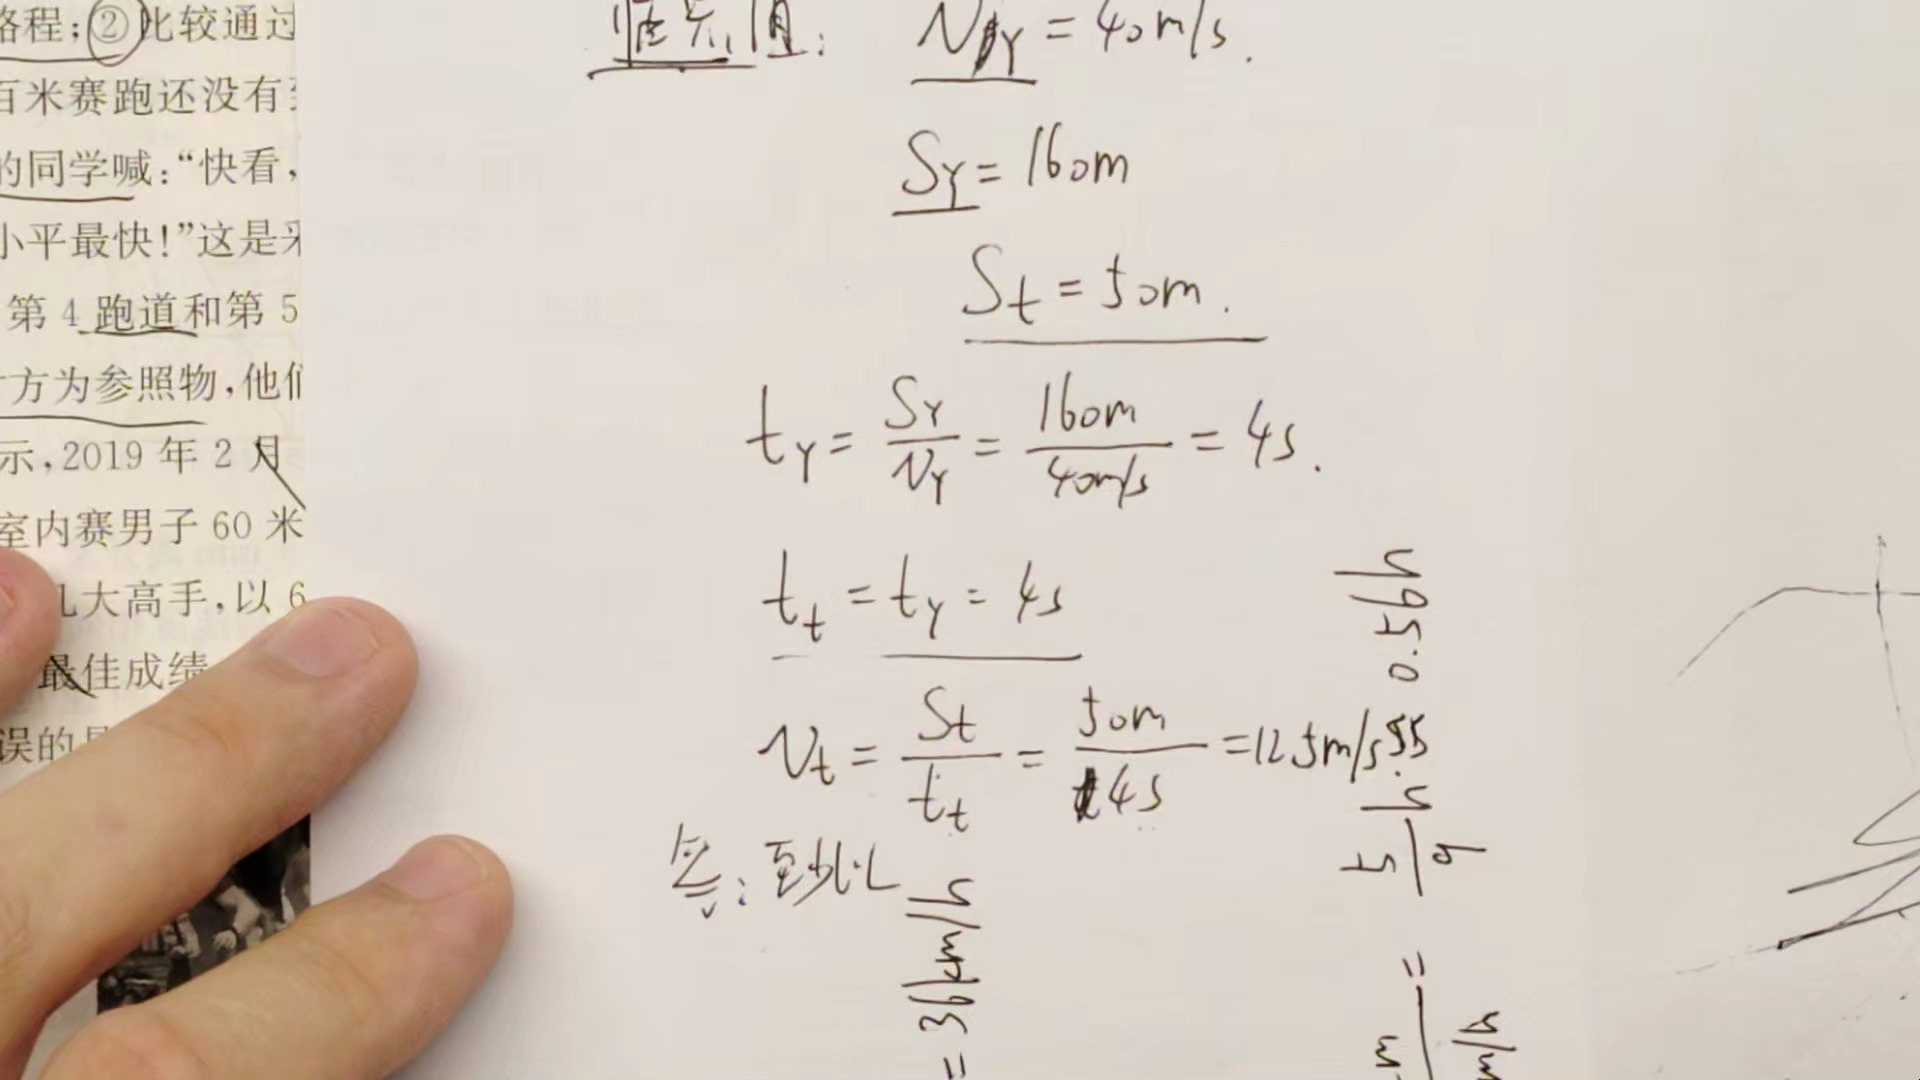 路程;②比较通过
百米赛跑还没有
的同学喊:“快看,
小平最快!”这是
第4跑道和第5
方为参照物,他们
示,2019年2月
室内赛男子60米
几大高手,以6
最佳成绩
误的是
临界值: vY = 40m/s.
SY = 160m
St = 50m.
tY = SY/vY = 160m/40m/s = 4s.
tt = tY = 4s
vt = St/tt = 50m/4s = 12.5m/s
答: 至少以
= 36km/h